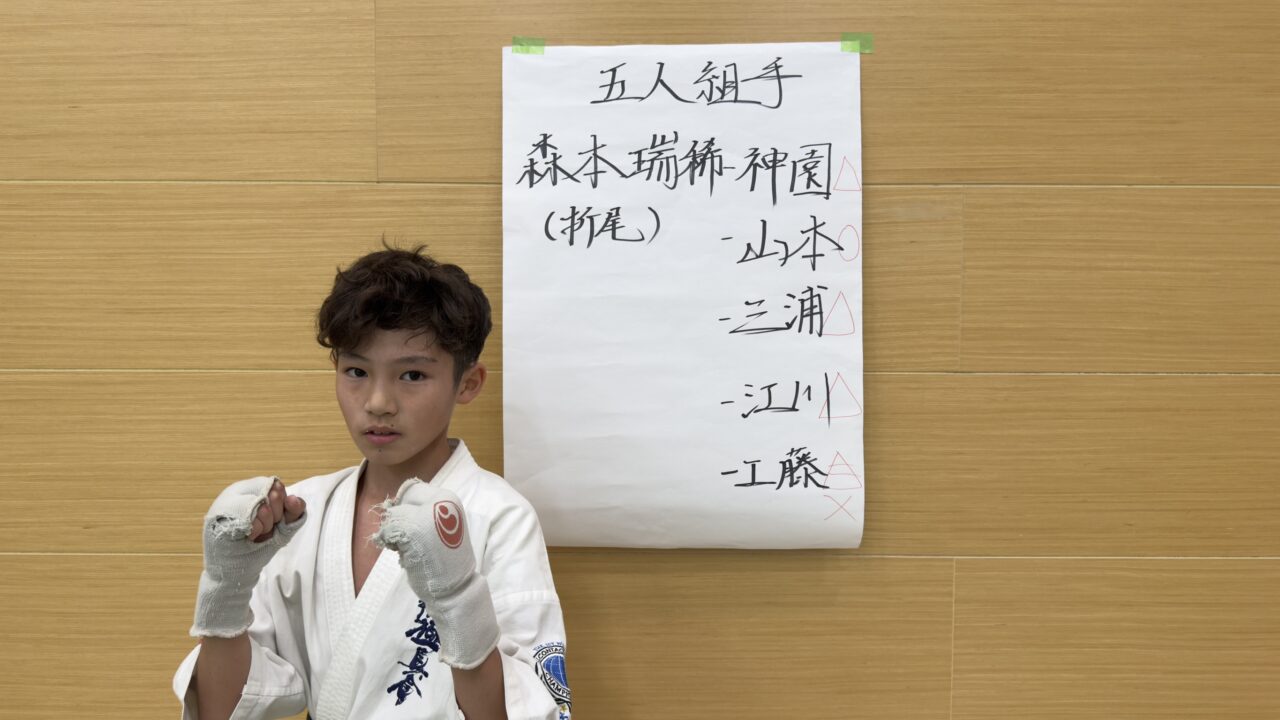 五人組手
森本瑞稀-神園△
(折尾)
-山本○
-三浦△
-江川△
-工藤△
×
極真会